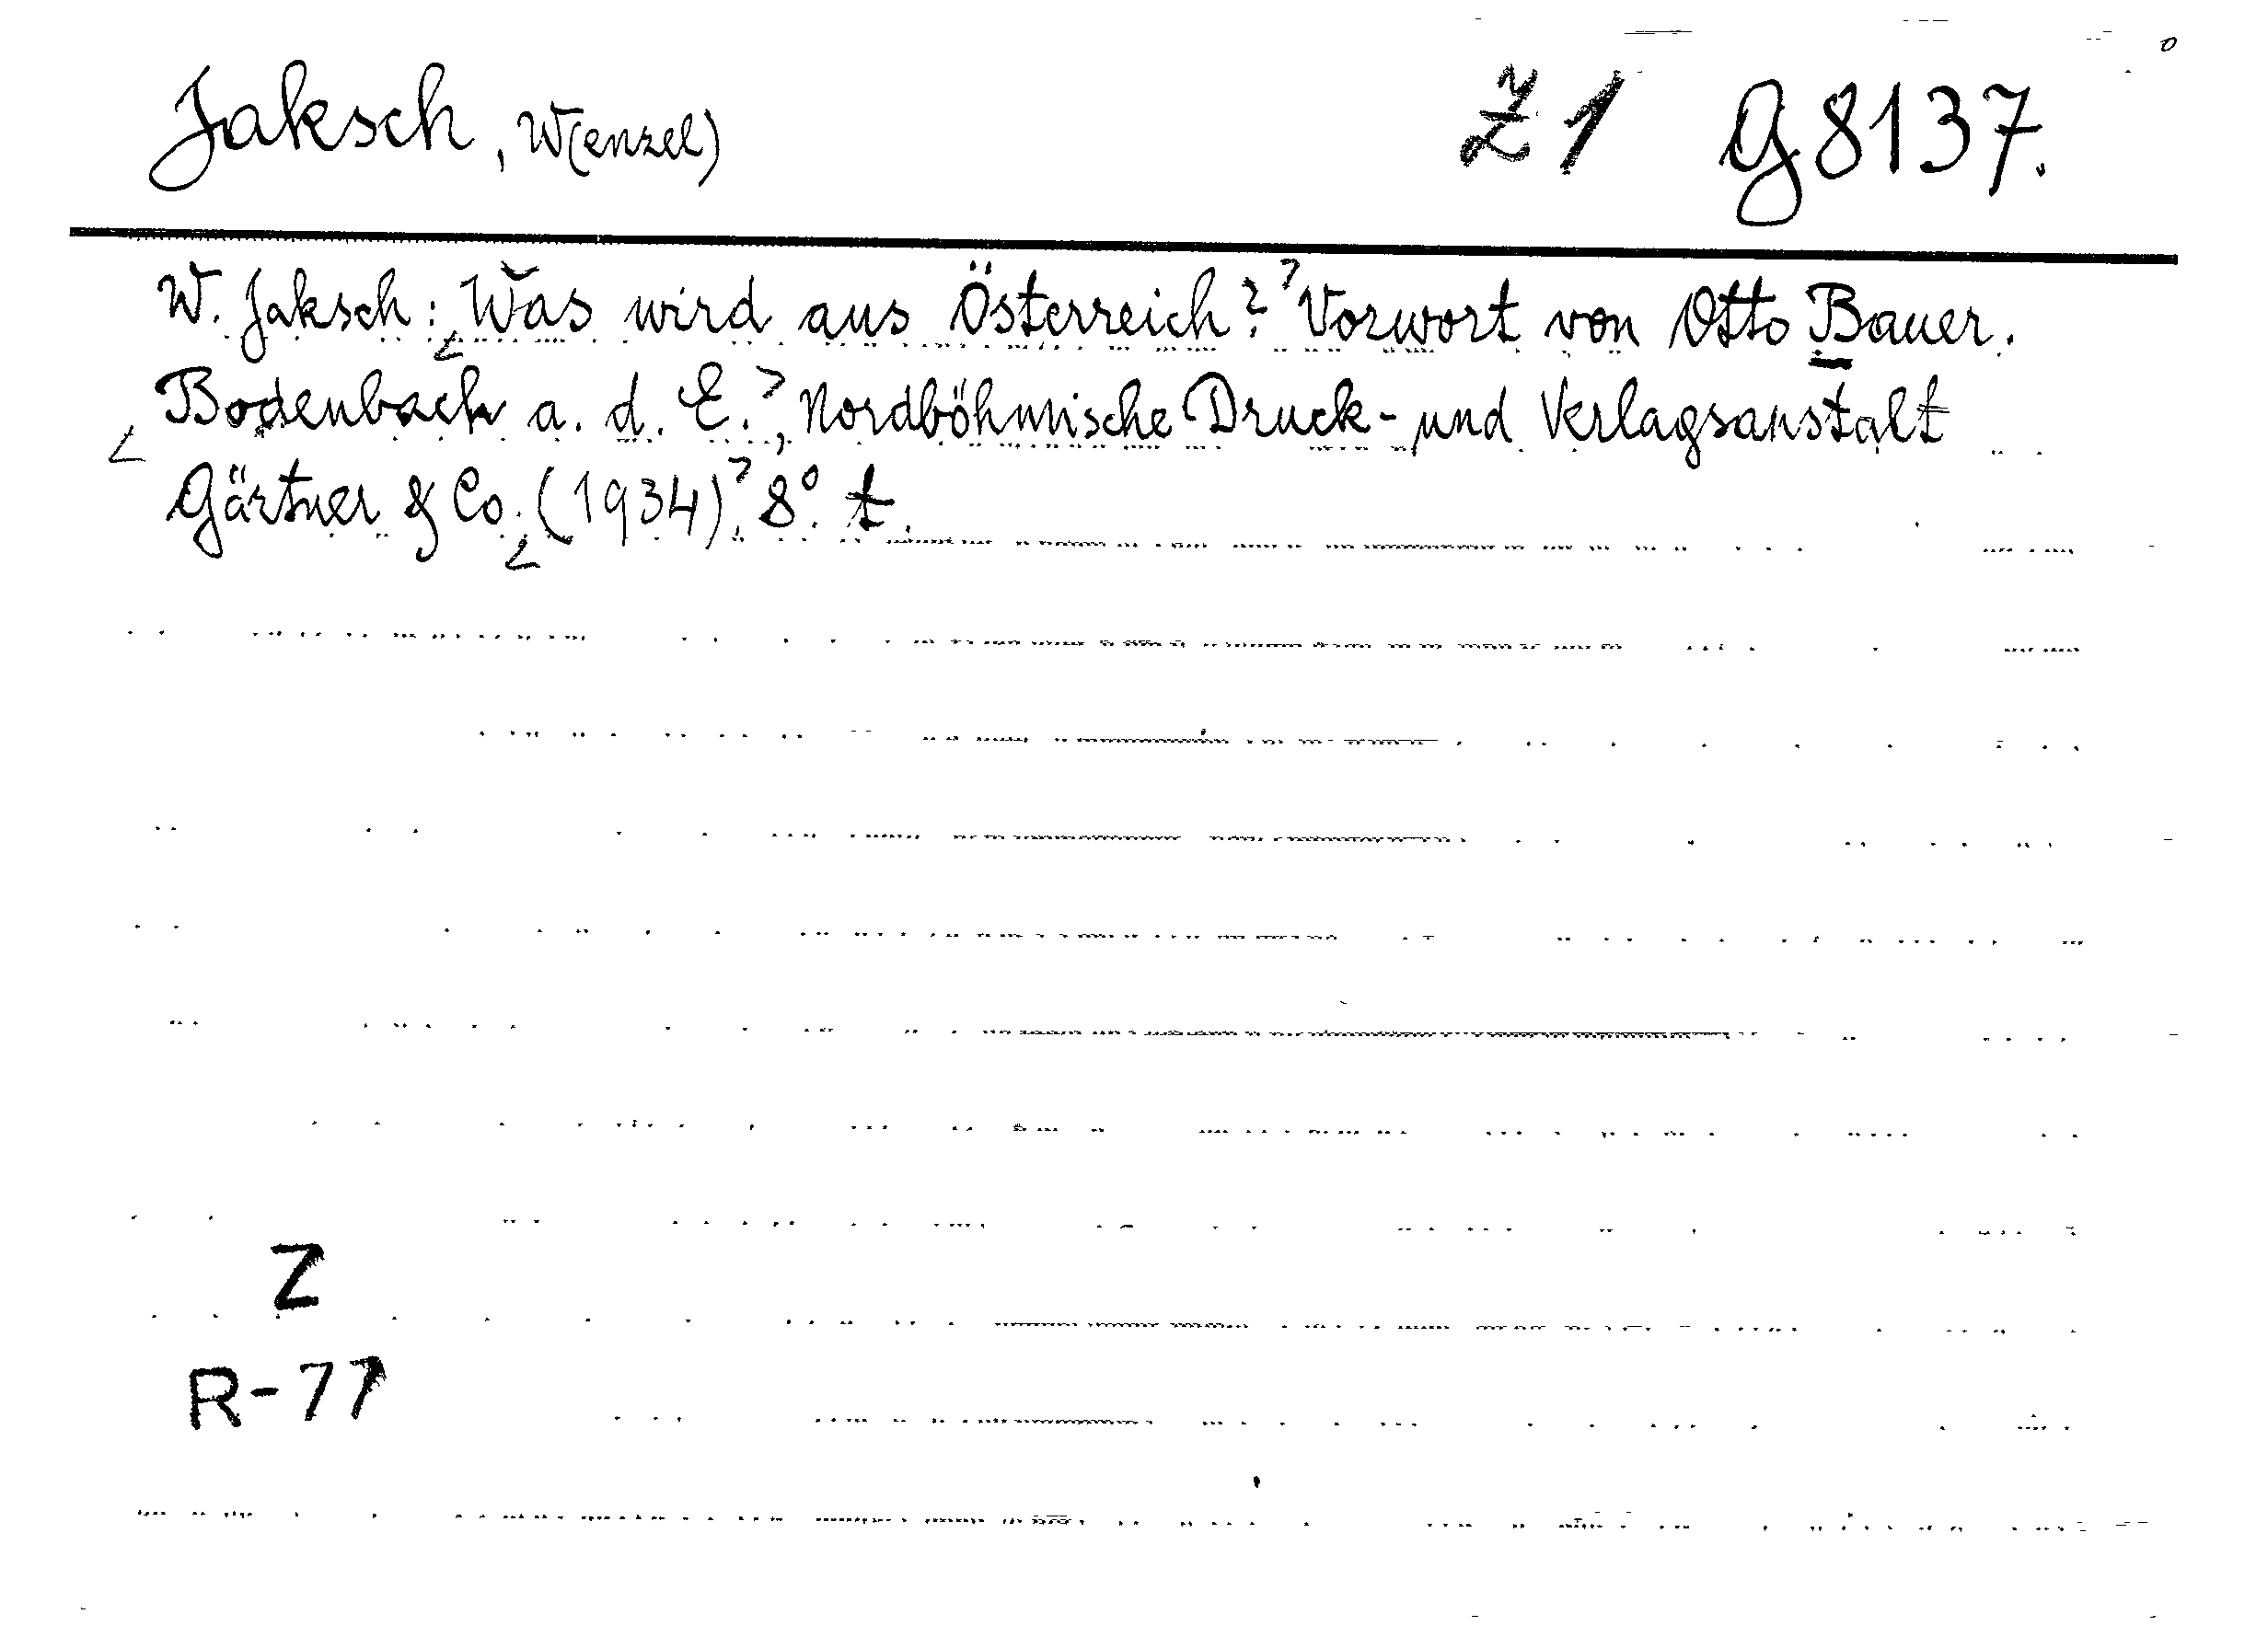 Jaksch, W(enzel) Z 1 G 8137.
W. Jaksch: Was wird aus Österreich? Vorwort von Otto Bauer.
Bodenbach a. d. E., Nordböhmische Druck- und Verlagsanstalt
Gärtner & Co. (1934). 8° t.
Z
R-77